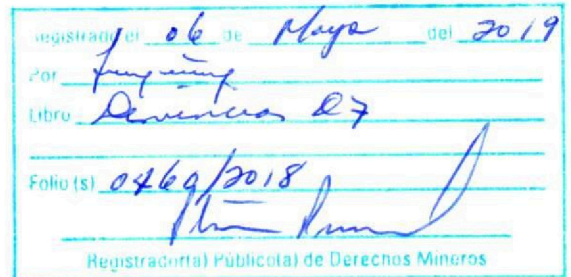 Registrado el 06 de Mayo del 2019
Por
Libro Denuncias 27
Folio (s) 0469/2018
Registrador(a) Público(a) de Derechos Mineros